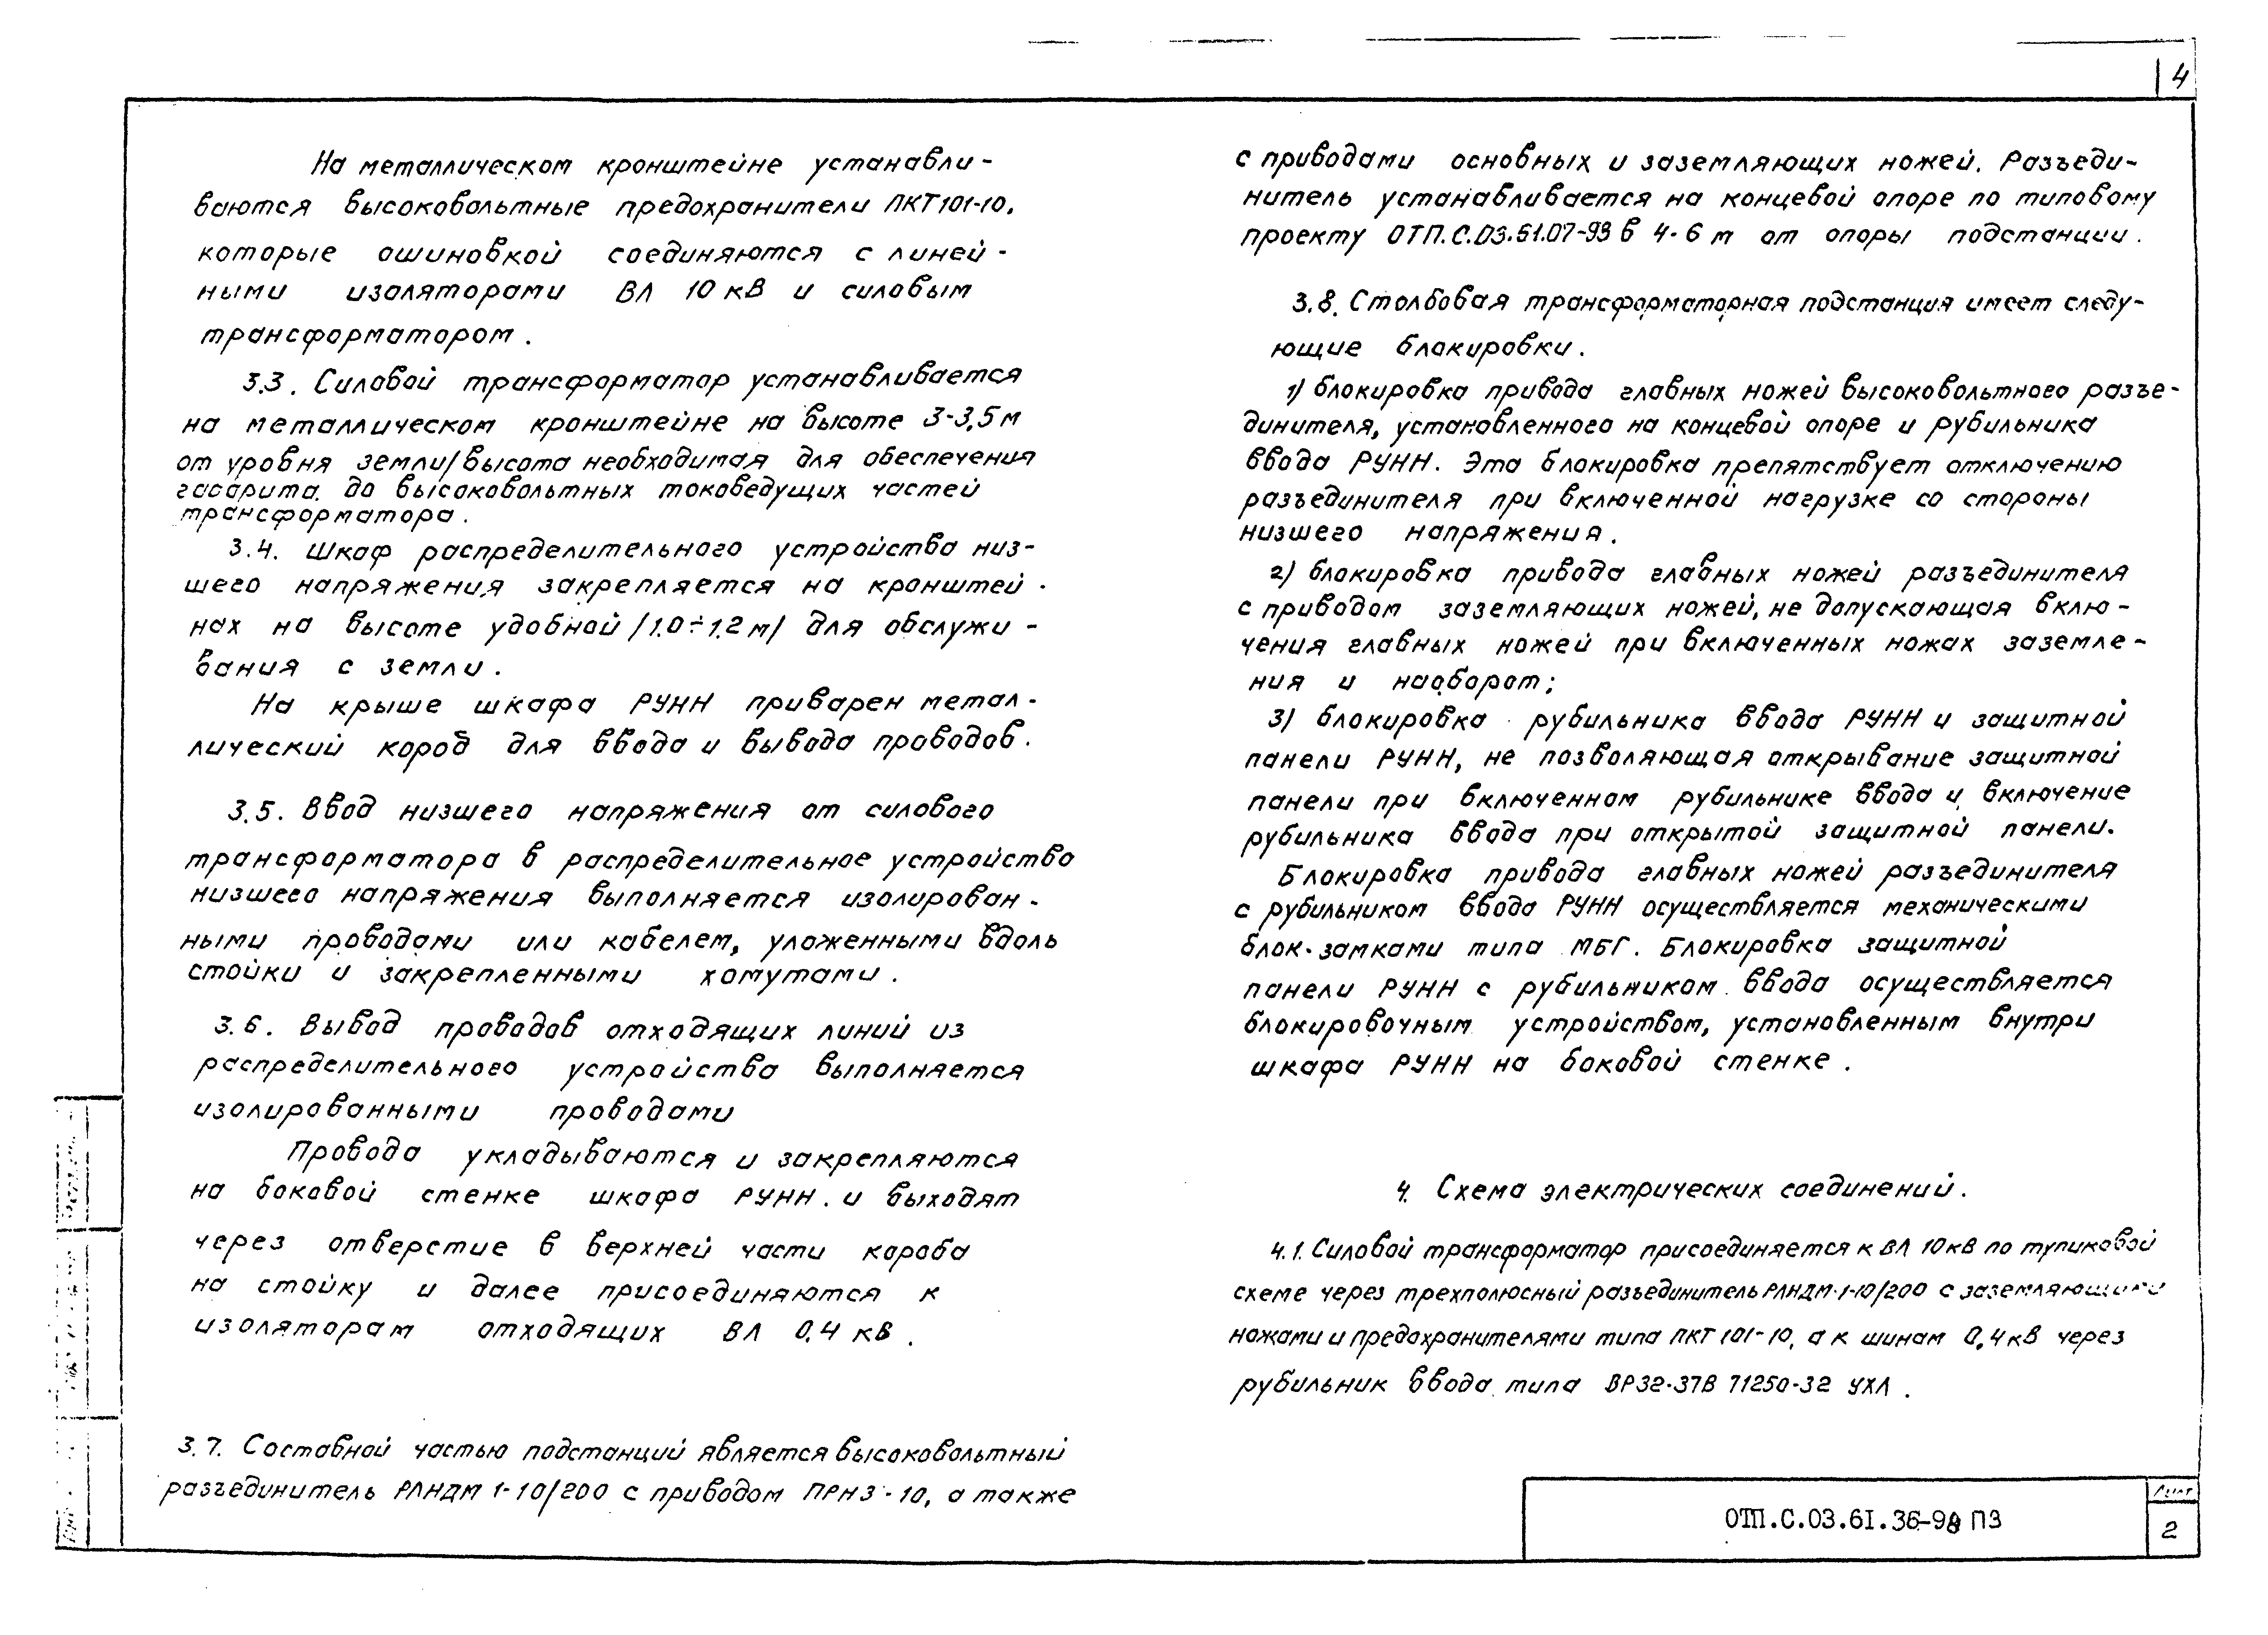 4
На металлическом кронштейне устанавли-
ваются высоковольтные предохранители ПКТ101-10,
которые ошиновкой соединяются с линей-
ными изоляторами ВЛ 10 кВ и силовым
трансформатором.
3.3. Силовой трансформатор устанавливается
на металлическом кронштейне на высоте 3-3,5 м
от уровня земли/высота необходимая для обеспечения
габарита до высоковольтных токоведущих частей
трансформатора.
3.4. Шкаф распределительного устройства низ-
шего напряжения закрепляется на кронштей-
нах на высоте удобной /1.0÷1.2 м/ для обслужи-
вания с земли.
На крыше шкафа РУНН приварен метал-
лический короб для ввода и вывода проводов.
3.5. Ввод низшего напряжения от силового
трансформатора в распределительное устройство
низшего напряжения выполняется изолирован-
ными проводами или кабелем, уложенными вдоль
стойки и закрепленными хомутами.
3.6. Вывод проводов отходящих линий из
распределительного устройства выполняется
изолированными проводами
Провода укладываются и закрепляются
на боковой стенке шкафа РУНН. и выходят
через отверстие в верхней части короба
на стойку и далее присоединяются к
изоляторам отходящих ВЛ 0.4 кВ.
3.7. Составной частью подстанций является высоковольтный
разъединитель РЛНДМ 1-10/200 с приводом ПРНЗ-10, а также
с приводами основных и заземляющих ножей. Разъеди-
нитель устанавливается на концевой опоре по типовому
проекту ОТП.С.03.61.07-93 в 4-6 м от опоры подстанции.
3.8. Столбовая трансформаторная подстанция имеет следу-
ющие блокировки.
1) блокировка привода главных ножей высоковольтного разъе-
динителя, установленного на концевой опоре и рубильника
ввода РУНН. Эта блокировка препятствует отключению
разъединителя при включенной нагрузке со стороны
низшего напряжения.
2) блокировка привода главных ножей разъединителя
с приводом заземляющих ножей, не допускающая вклю-
чения главных ножей при включенных ножах заземле-
ния и наоборот;
3) блокировка рубильника ввода РУНН и защитной
панели РУНН, не позволяющая открывание защитной
панели при включенном рубильнике ввода и включение
рубильника ввода при открытой защитной панели.
Блокировка привода главных ножей разъединителя
с рубильником ввода РУНН осуществляется механическими
блок-замками типа МБГ. Блокировка защитной
панели РУНН с рубильником ввода осуществляется
блокировочным устройством, установленным внутри
шкафа РУНН на боковой стенке.
4. Схема электрических соединений.
4.1. Силовой трансформатор присоединяется к ВЛ 10кВ по тупиковой
схеме через трехполюсный разъединитель РЛНДМ-1-10/200 с заземляющими
ножами и предохранителями типа ПКТ 101-10, а к шинам 0,4кВ через
рубильник ввода типа ВР32-37В 71250-32 УХЛ.
ОТП.С.03.61.36-98 ПЗ
Лист
2